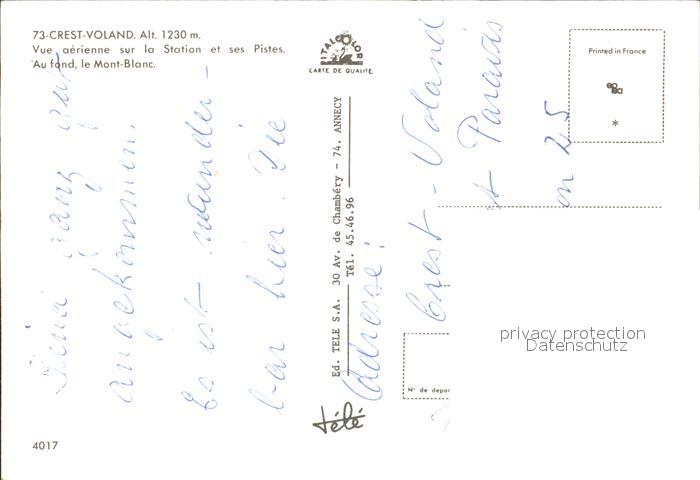 73-CREST-VOLAND. Alt. 1230 m.
Vue aérienne sur la Station et ses Pistes.
Au fond, le Mont-Blanc.
ITALCOLOR
CARTE DE QUALITE
Printed in France
*
Sind ganz gut
angekommen.
Es ist wunder-
bar hier. Die
Adresse!
Crest-Voland
Ed. TELE S.A. 30 Av. de Chambéry - 74. ANNECY
Tél. 45.46.96
télé
N° de depar
privacy protection
Datenschutz
4017